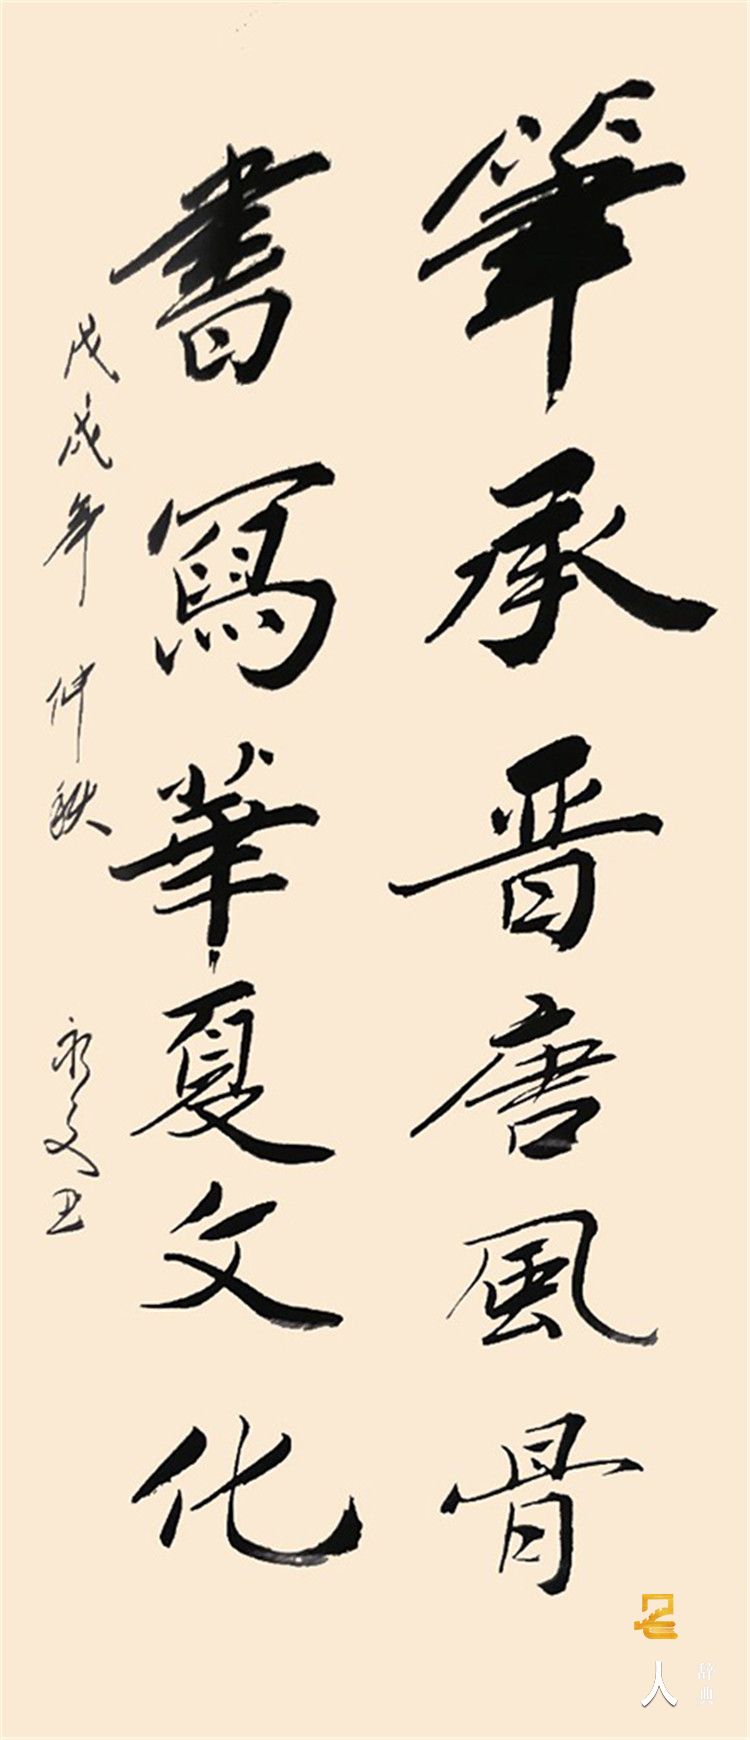 筆承晋唐風骨
書寫華夏文化
戊戌年 仲秋
永文书
人
辞典